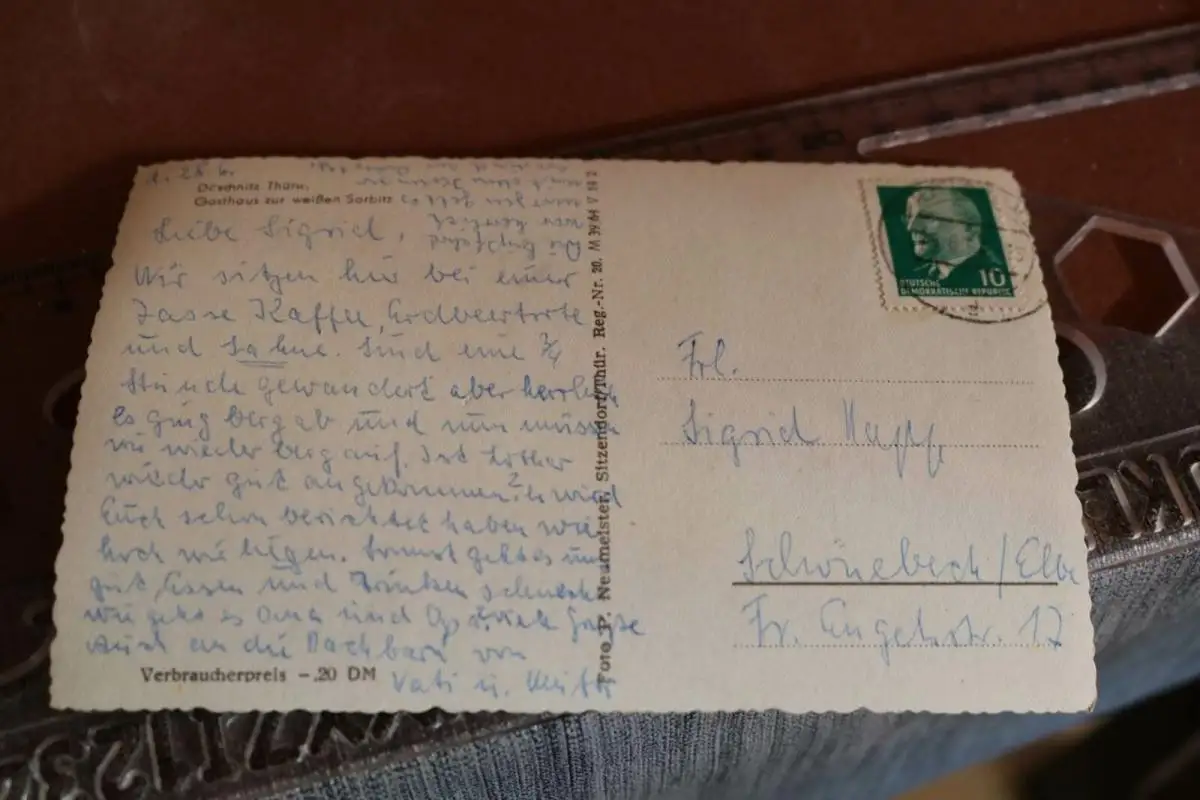 Döschnitz Thür.
Gasthaus zur weißen Sorbitz
Liebe Sigrid,
Wir sitzen hier bei einer
Tasse Kaffee, Erdbeertorte
und Sahne. Sind eine ¾
Stunde gewandert aber herrlich
es ging bergab und nun müssen
wir wieder bergauf. Ist Lothar
wieder gut angekommen? Er wird
Euch schon berichtet haben wie
hoch wir liegen. Sonst geht es uns
gut, Essen und Trinken schmeckt
wie geht es Oma und Opa? Viele Grüße
auch an die Nachbarn von
Vati u. Mutti
Verbraucherpreis -.20 DM
Foto P. Neumeister, Sitzendorf/Thür. Reg.-Nr. 20. M 39/64 V 14 2
DEUTSCHE
DEMOKRATISCHE REPUBLIK
10
Frl.
Sigrid
Schönebeck/Elbe
Fr. Engelsstr. 17